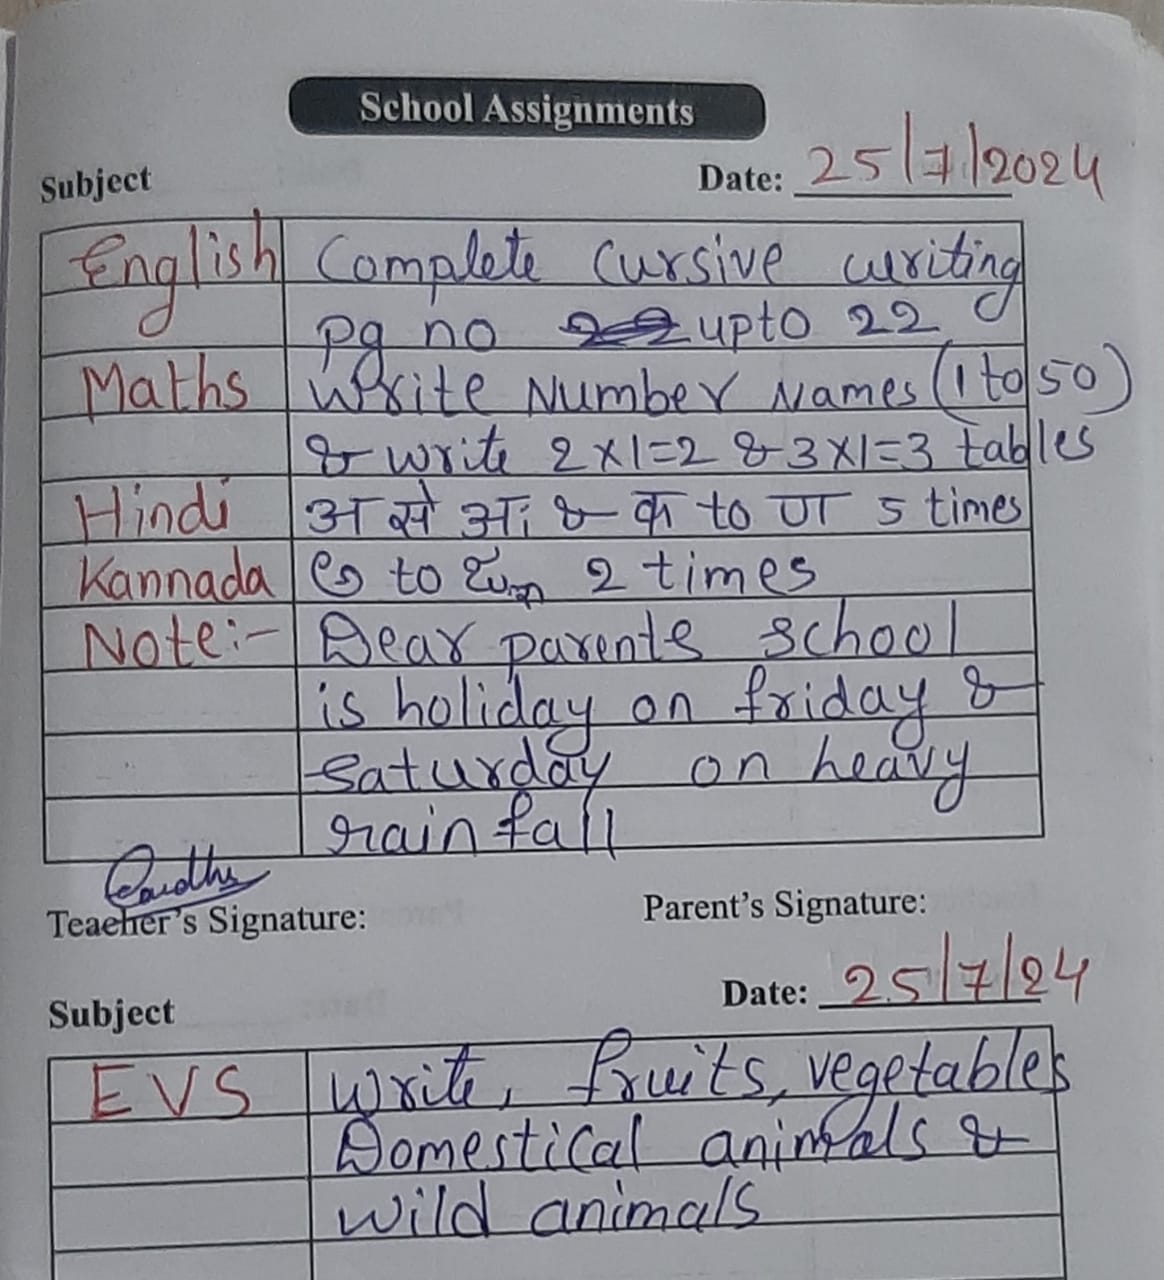 School Assignments
Subject Date: 25/7/2024
English Complete Cursive writing
pg no upto 22
Maths Write Number Names (1 to 50)
& write 2x1=2 & 3x1=3 tables
Hindi अ से अः & क to ण 5 times
Kannada ಅ to 2 times
Note:- Dear parents school
is holiday on friday &
saturday on heavy
rainfall
Teacher's Signature: Parent's Signature:
Subject Date: 25/7/24
EVS Write, fruits, vegetables
Domestical animals &
wild animals